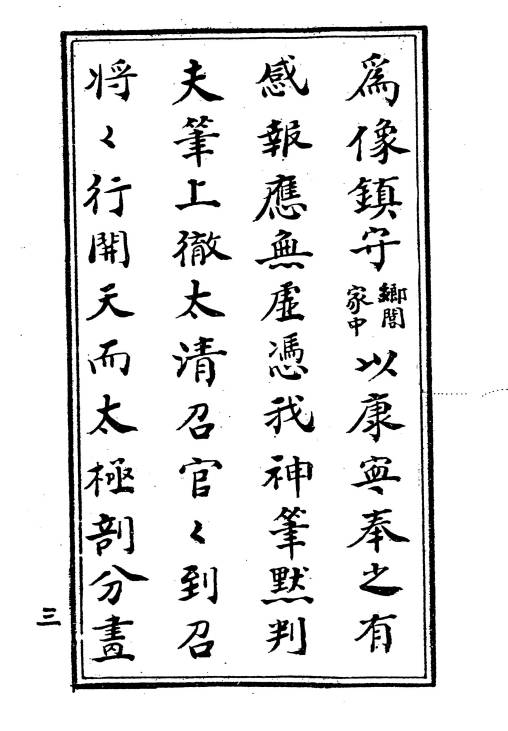 為像鎮守鄉閭家中以康寧奉之有
感報應無虛憑我神筆默判
夫筆上徹太清召官々到召
将々行開天而太極剖分畫
三